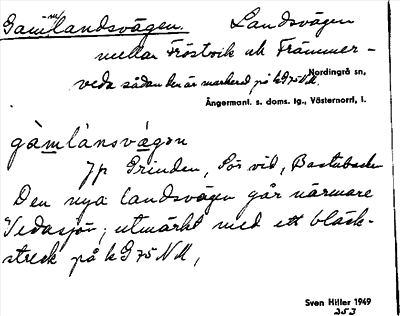 Gamlandsvägen. Landsvägen
mellan Fröstvik och Främmer-
veda sådan den är markerad på k G75NU.
Nordingrå sn,
Ångermanl. s. doms. tg., Västernorrl. l.
gàmlánsvägən
Jp Grinden, Sör vid, Bastubacken
Den nya landsvägen går närmare
Vedasjön; utmärkt med ett bläck-
streck på k G 75 NU,
Sven Hiller 1949
253